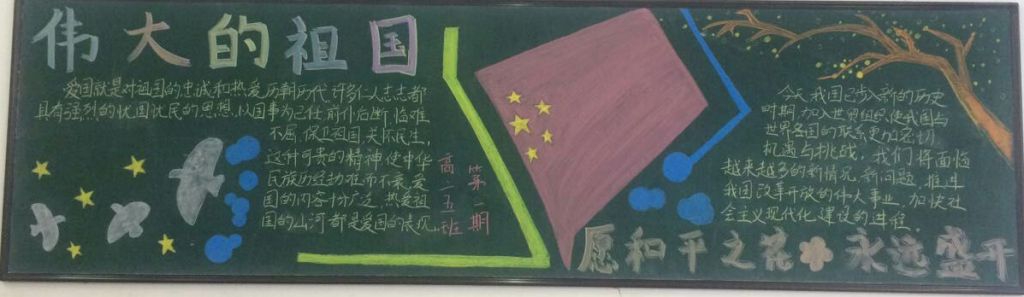 伟大的祖国
爱国就是对祖国的忠诚和热爱.历朝历代,许多仁人志志都
具有强烈的忧国忧民的思想,以国事为己任,前仆后断,临难
不屈,保卫祖国,关怀民生,
这种可贵的精神,使中华
民族历经劫难而不衰.爱
国的内容十分广泛,热爱祖
国的山河都是爱国的表现.
第一期
高一五班
今天,我国已步入新的历史
时期,加入世界组织,使我国与
世界各国的联系更加密切,
机遇与挑战,我们将面临
越来越多的新情况,新问题,推进
我国改革开放的伟大事业,加快社
会主义现代化建设的进程.
愿和平之花永远盛开